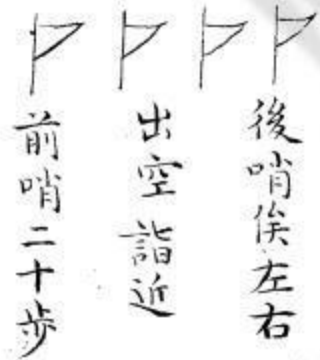 後哨俟左右
出空詣近
前哨二十步